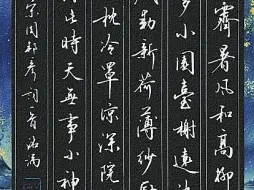 霽暑風和高柳
多小園臺榭遠池
動新荷薄紗廚
枕冷簟涼深院
此時天無事小神
宋周邦彥詞首